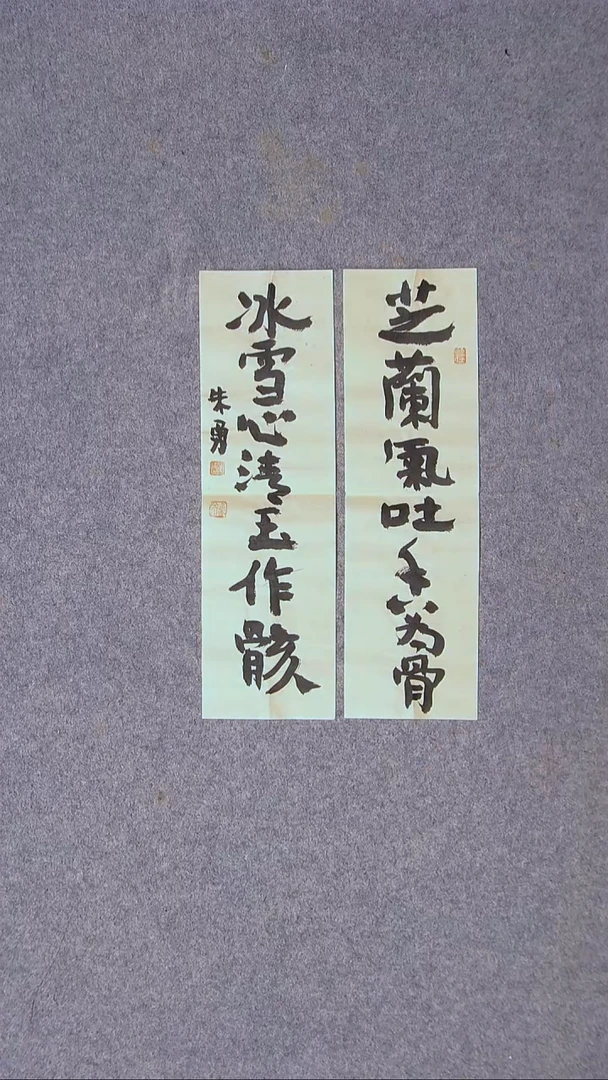 芝蘭氣吐香為骨
冰雪心清玉作骸
朱勇